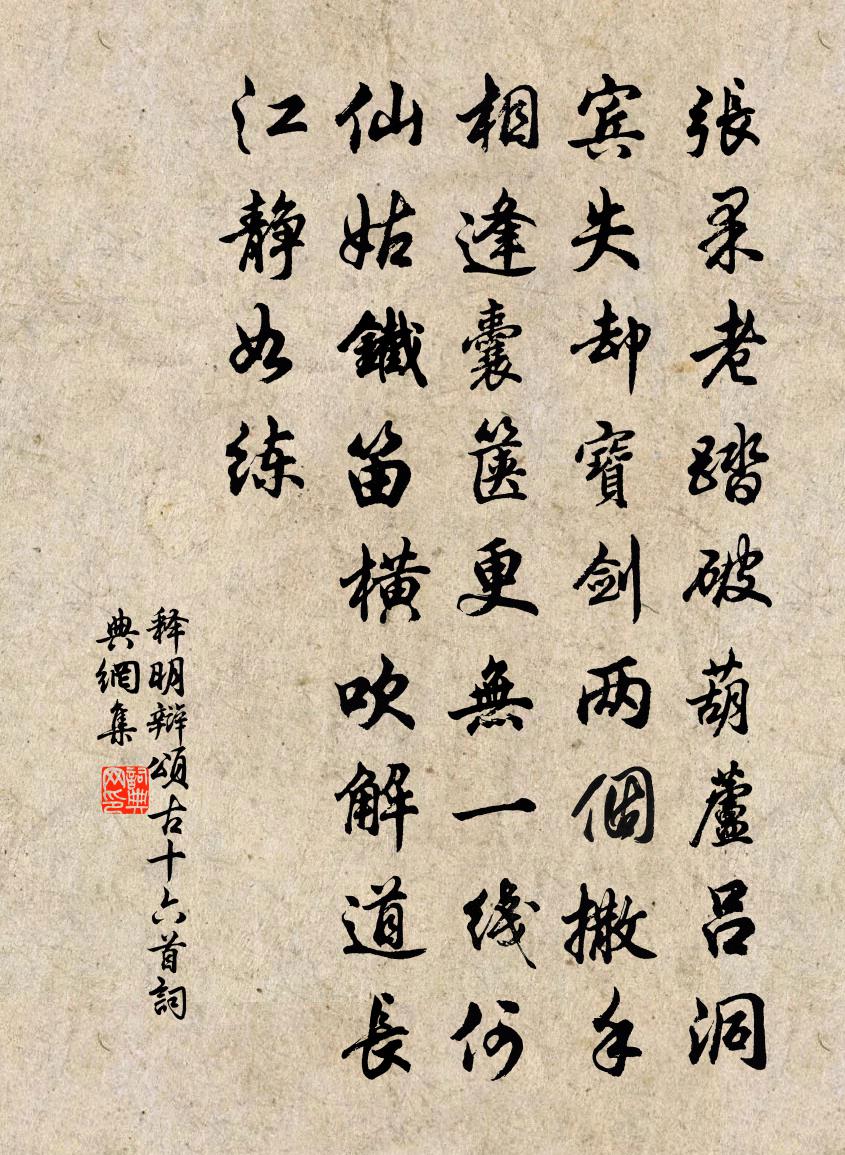 張果老踏破葫蘆吕洞
宾失却寶剑两個撒手
相逢囊篋更無一綫何
仙姑鐵笛橫吹解道長
江静如练
释明辯頌古十六首詞
典網集
詞典网印